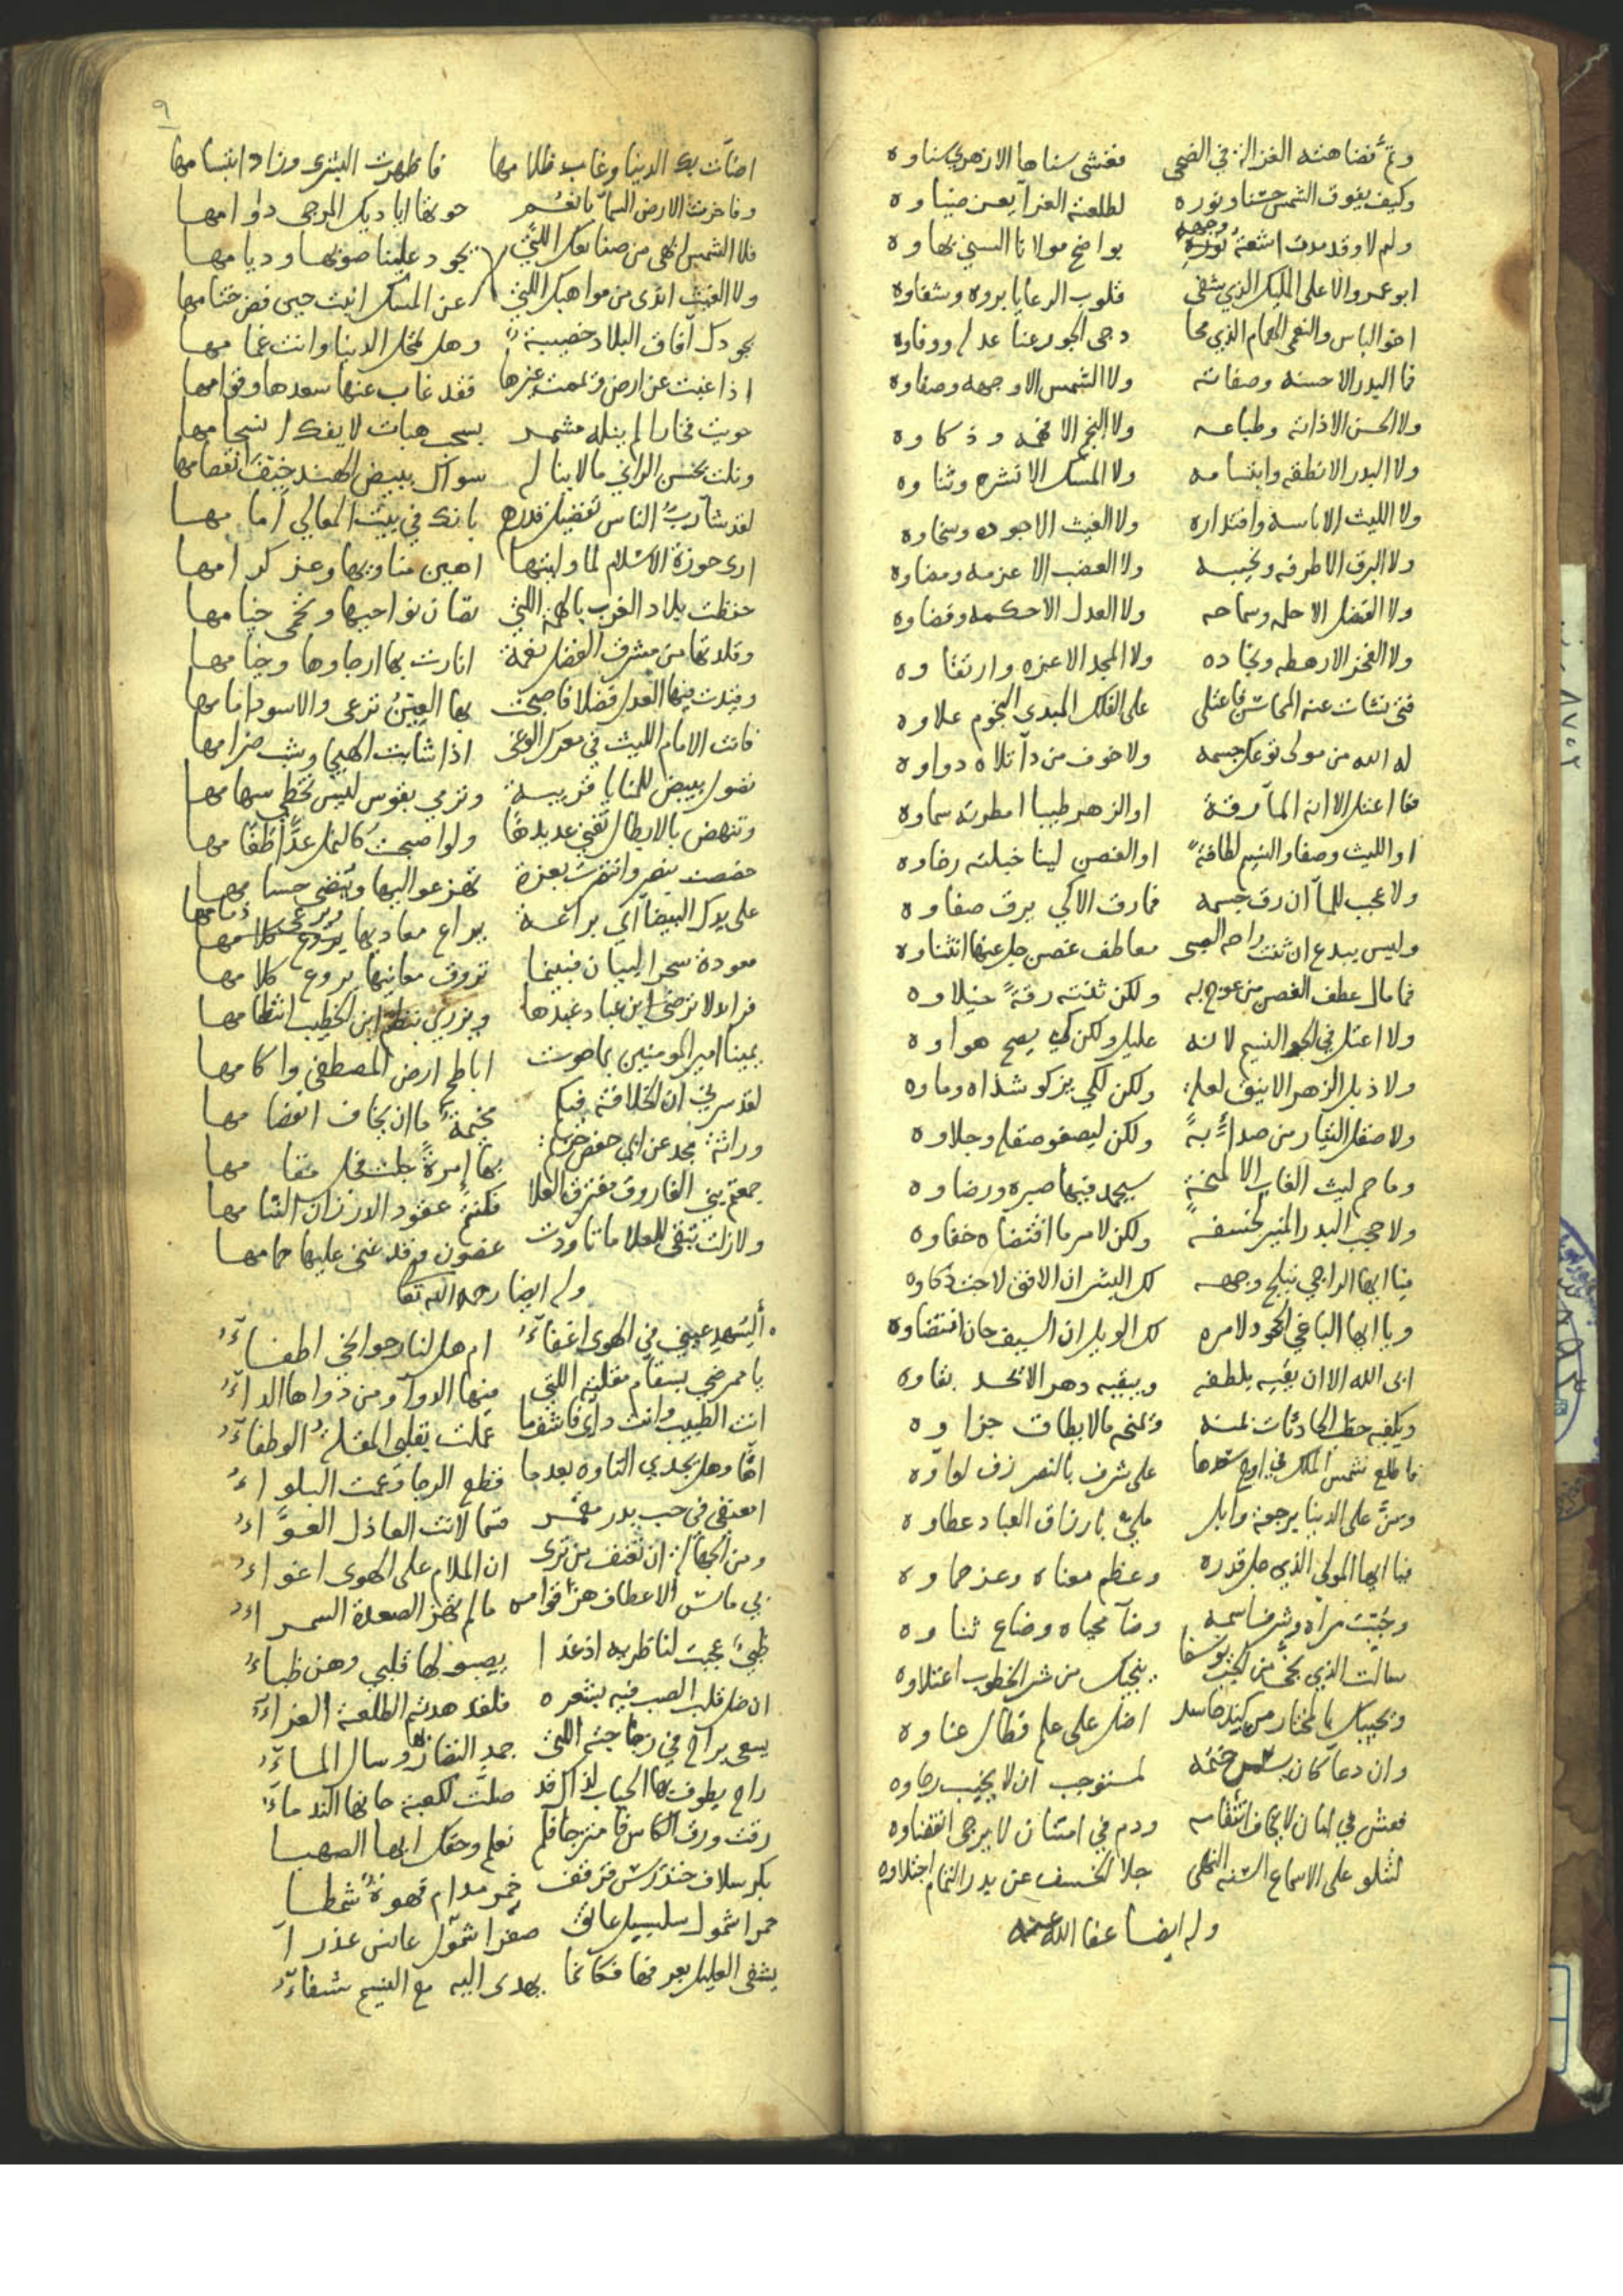 وكم تضاهته الغزالة في الضحى فغشى سناها الازهري سناوه
وكيف يفوق الشمس حسنا ونوره لطلعته الغرا يعن ضياوه
ولم لا وقد مدت اشعة نوره وجهه بواضح مولانا السني بهاوه
ابو عمرو الاعلى المليك الذي شفى قلوب الرعايا بروه وشفاوه
اخو الباس والنعمى الهمام الذي محا دجى الجور عنا عدله ووفاوه
فما البدر الا حسنه وصفاته ولا الشمس الا وجهه وصفاوه
ولا الحسن الا ذاته وطباعه ولا النجم الا فهمه وذكاوه
ولا البدر الا نطقه وابتسامه ولا المسك الا نشره وثناوه
ولا الليث الا باسه واقتداره ولا الغيث الا جوده وسخاوه
ولا البرق الا طرفه ونجيبه ولا العضب الا عزمه ومضاوه
ولا الفضل الا حلمه وسماحه ولا العدل الا حكمه وقضاوه
ولا الفخر الا رهطه ونجاده ولا المجد الا عزه وارتقاوه
فتى نشات عنه المحاسن فاعتلى على الفلك المبدي النجوم علاوه
له الله من مولى توعك جسمه ولا خوف من دآ تلاه دواوه
فما اعتل الا انه المآ رقة او الزهر طيبا امطرته سماوه
او الليث وصفا والنسيم لطافة او الغصن لينا خيلته رخاوه
ولا عجب للمآ ان رق جسمه فما رق الا كي يرق صفاوه
وليس ببدع ان ثنت راحه الصبى معاطف غصن جل عنها انثناوه
فما مال عطف الغصن من عوج به ولكن ثنيته رقة خيلاوه
ولا اعتل في الجو النسيم لانه عليل ولكن كي يصح هواوه
ولا ذبل الزهر الانيق لعلة ولكن لكي يزكو شذاه وماوه
ولا صقل التيار من صدأ به ولكن ليصفو صقله وجلاوه
وما حم ليث الغاب الا لمنحة سيحمد فيها صبره ورضاوه
ولا حجب البدر المنير لخسفة ولكن لامر ما اقتضاه خفاوه
فيا ايها الراجي تبلج وجهه لك البشر ان الافق لاحت ذكاوه
ويا ايها الباغي الجحود لامره لك الويل ان السيف حان انتضاوه
ابى الله الا ان يقيه بلطفه ويبقيه دهر الا يحد بقاوه
ويكفيه خطب الحادثات بمنه ويمنحه ما لا يطاق جزاوه
فاطلع شمس الملك في اوج سعدها على شرف بالنصر زف لواوه
ومن على الدنيا برجعة وابل ملي بارزاق العباد عطاوه
فيا ايها المولى الذي جل قدره وعظم معناه وعز حماوه
وحيت مراه وشرف اسمه وضآ محياه وضاع ثناوه
سالت الذي نجى من الجب يوسفا ينجيك من شر الخطوب اعتلاوه
ونجيك بالمختار من كيد حاسد اضل على علم فطال عناوه
وان دعا كان ختمه لمستوجب ان لا يخيب رجاوه
فعش في امان لا يخاف انتقاصه ودم في امتنان لا يرجى انقضاوه
لتتلو على الاسماع السنه النهى جلا الخسف عن بدر التمام اجتلاوه
وله ايضا عفا الله عنه
٩
اضاءت بك الدنيا وغاب ظلامها فاظهرت البشرى وزاد ابتسامها
وفاخرت الارض السمآ بانعم حوتها اياديك المرجى دوامها
فلا الشمس ابهى من صفاتك اللتي تجود علينا صوبها وديامها
ولا الغيث اندى من مواهبك اللتي عن المسك انبت حين فض ختامها
بجودك آفاق البلاد خصيبة وهل تمحل الدنيا وانت غمامها
اذا غبت عن ارض ويممت غيرها فقد غاب عنها سعدها وقوامها
حويت فخارا لم ينله مشمر بسحب هبات لا يفك انسجامها
ونلت بحسن الراي ما لا يناله سواك ببيض الهند خيف انفصامها
لقد شآ رب الناس تفضيل قدرهم بانك في بيت المعالي امامها
ارى حوزة الاسلام لما وليتها اهين مناويها وعز كرامها
حفظت بلاد الغرب بالهمة اللتي تصان نواحيها ويحمى خيامها
وقلدتها من مشرق الفضل نعمة انارت بها ارجاوها وخيامها
وقيدت فيها العدل فضلا فاصبحت بها العين ترعى والاسود امامها
فانت الامام الليث في معرك الوغى اذا شابت الهيجا وشب ضرامها
تصول ببيض للمنايا قريبة وترمي بقوس ليس تخطي سهامها
وتنهض بالابطال تفني عديدها ولو اصبحت كالنمل عدا طغامها
خصصت بنصر وانفردت بعزة تهز عواليها وينضى حسامها
على يدك البيضآ اي براعة يراع معاديها ويرعى ذمامها
معودة سحر البيان فبينما تروق معانيها يروع كلامها
فرائد لا ترضى ابن عباد عبدها ويزري بنظم ابن الخطيب انتظامها
يمينا امير المومنين بما حوت اباطح ارض المصطفى واكامها
لقد سرني ان الخلافة فيكم مخيمة ما ان يخاف انفضامها
وراثة مجد عن ابي حفص حزتم بها إمرة جلت فجل مقامها
جمعتم بني الفاروق مفترق العلا فكنتم عقودا لارزان التئامها
ولا زلت تبقى للعلا ما تاودت غصون وقد غنى عليها حمامها
وله ايضا رحمه الله تعا
أليسهد عيني في الهوى اغفآء ام هل لنار جوانحي اطفآء
يا ممرضي بسقام مقلته اللتي فيها الدوآ ومن دواها الدآء
انت الطبيب وانت دآي فاشف ما عملت بقلبي المقلة الوطفآء
آها وهل يجدي التاوه بعد ما قطع الرجا وعمت البلواء
امعنفي في حب بدر مقمر قسما لانت العاذل العواء
ومن الجهالة ان تعنف من ترى ان الملام على الهوى اغواء
بي مائس الاعطاف هز قوامه ما لم تهز الصعدة السمراء
ظبي عجبت لناظريه اذ غدا يصبو لها قلبي وهن ظباء
ان ضل قلب الصب فيه بشعره فلقد هدته الطلعة الغراء
يسعى براح في زجاجته اللتي جمد النضار بها وسال المآء
راح يطوف بها الحباب لذاك قد صلت لكعبة حانها الندمآء
رقت ورق الكاس فامتزجا فلم نعلم وحقك ايها الصهبا
بكر سلاف خندريس قرقف خمر مدام قهوة شمطا
حمرا شمول سلسبيل عاتق صفرا شمول عانس عذرآ
يشفى العليل بعرفها فكانما يهدى اليه مع النسيم شفآء